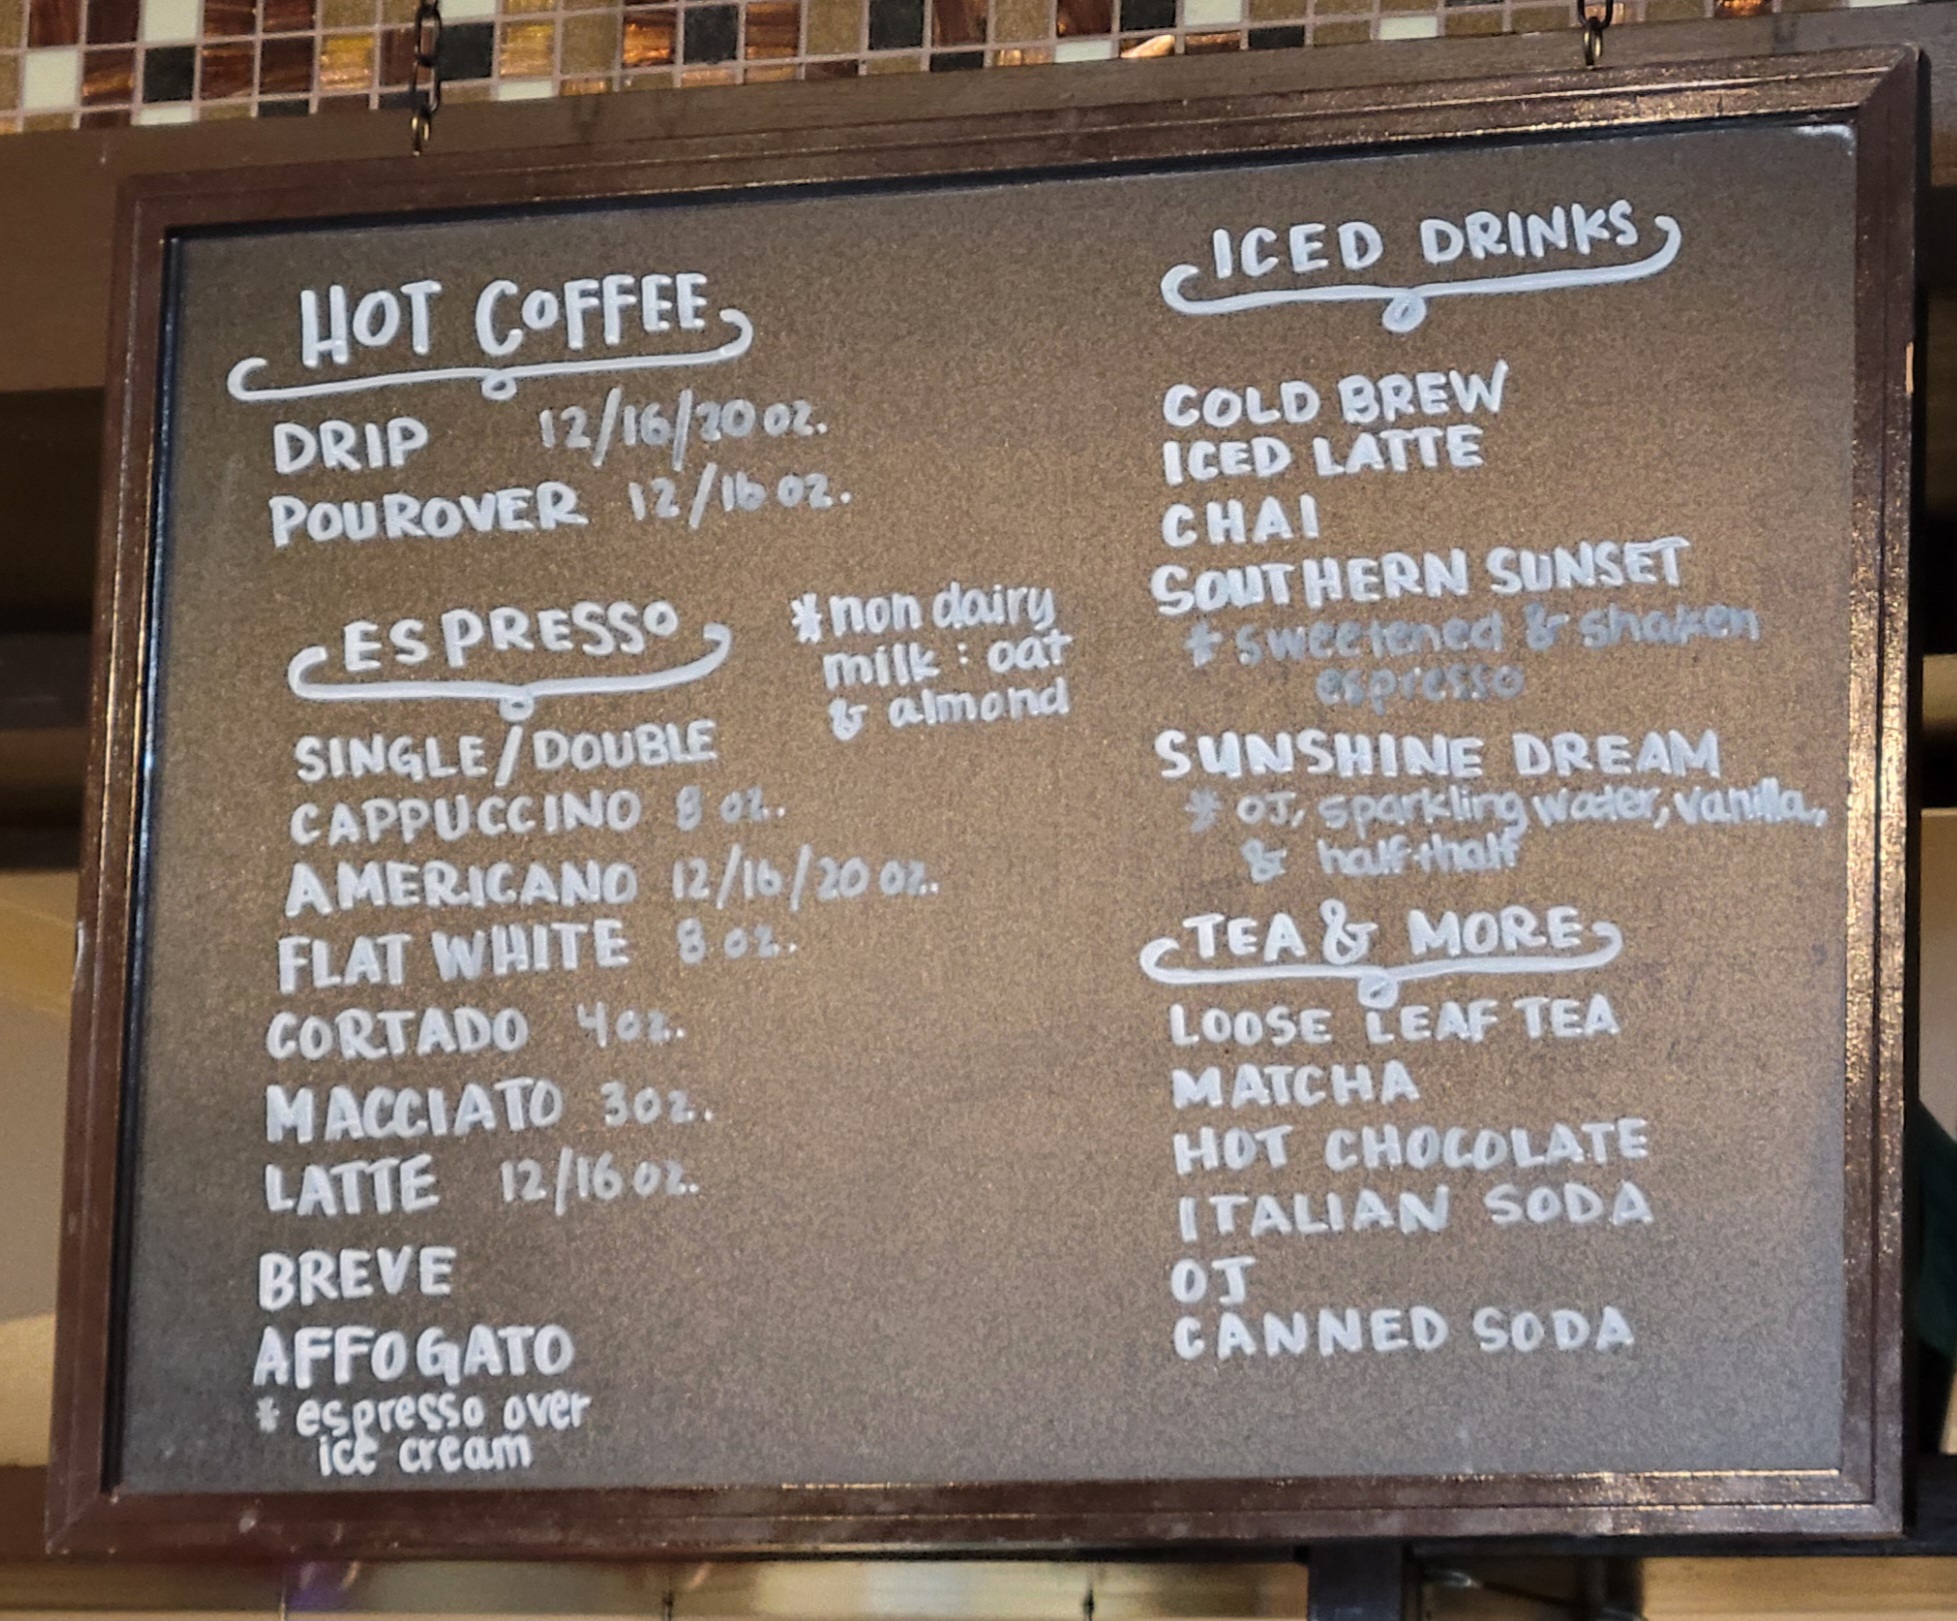 HOT COFFEE
DRIP 12/16/20 oz.
POUROVER 12/16 oz.
ESPRESSO
*non dairy
milk: oat
& almond
SINGLE/DOUBLE
CAPPUCCINO 8 oz.
AMERICANO 12/16/20 oz.
FLAT WHITE 8 oz.
CORTADO 4oz.
MACCIATO 3oz.
LATTE 12/16 oz.
BREVE
AFFOGATO
* espresso over
ice cream
ICED DRINKS
COLD BREW
ICED LATTE
CHAI
SOUTHERN SUNSET
* sweetened & shaken
espresso
SUNSHINE DREAM
* OJ, sparkling water, vanilla,
& half+half
TEA & MORE
LOOSE LEAF TEA
MATCHA
HOT CHOCOLATE
ITALIAN SODA
OJ
CANNED SODA